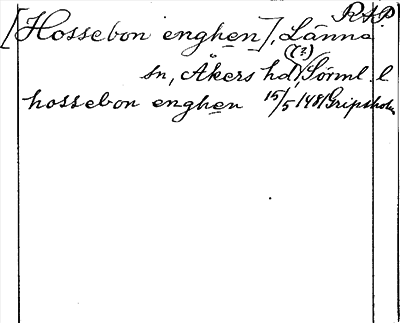 RAP
[Hossebon enghen], Länna
(?)
sn, Åkers hd, Sörml. l.
hossebon enghen 15/5 1481 Gripsholm